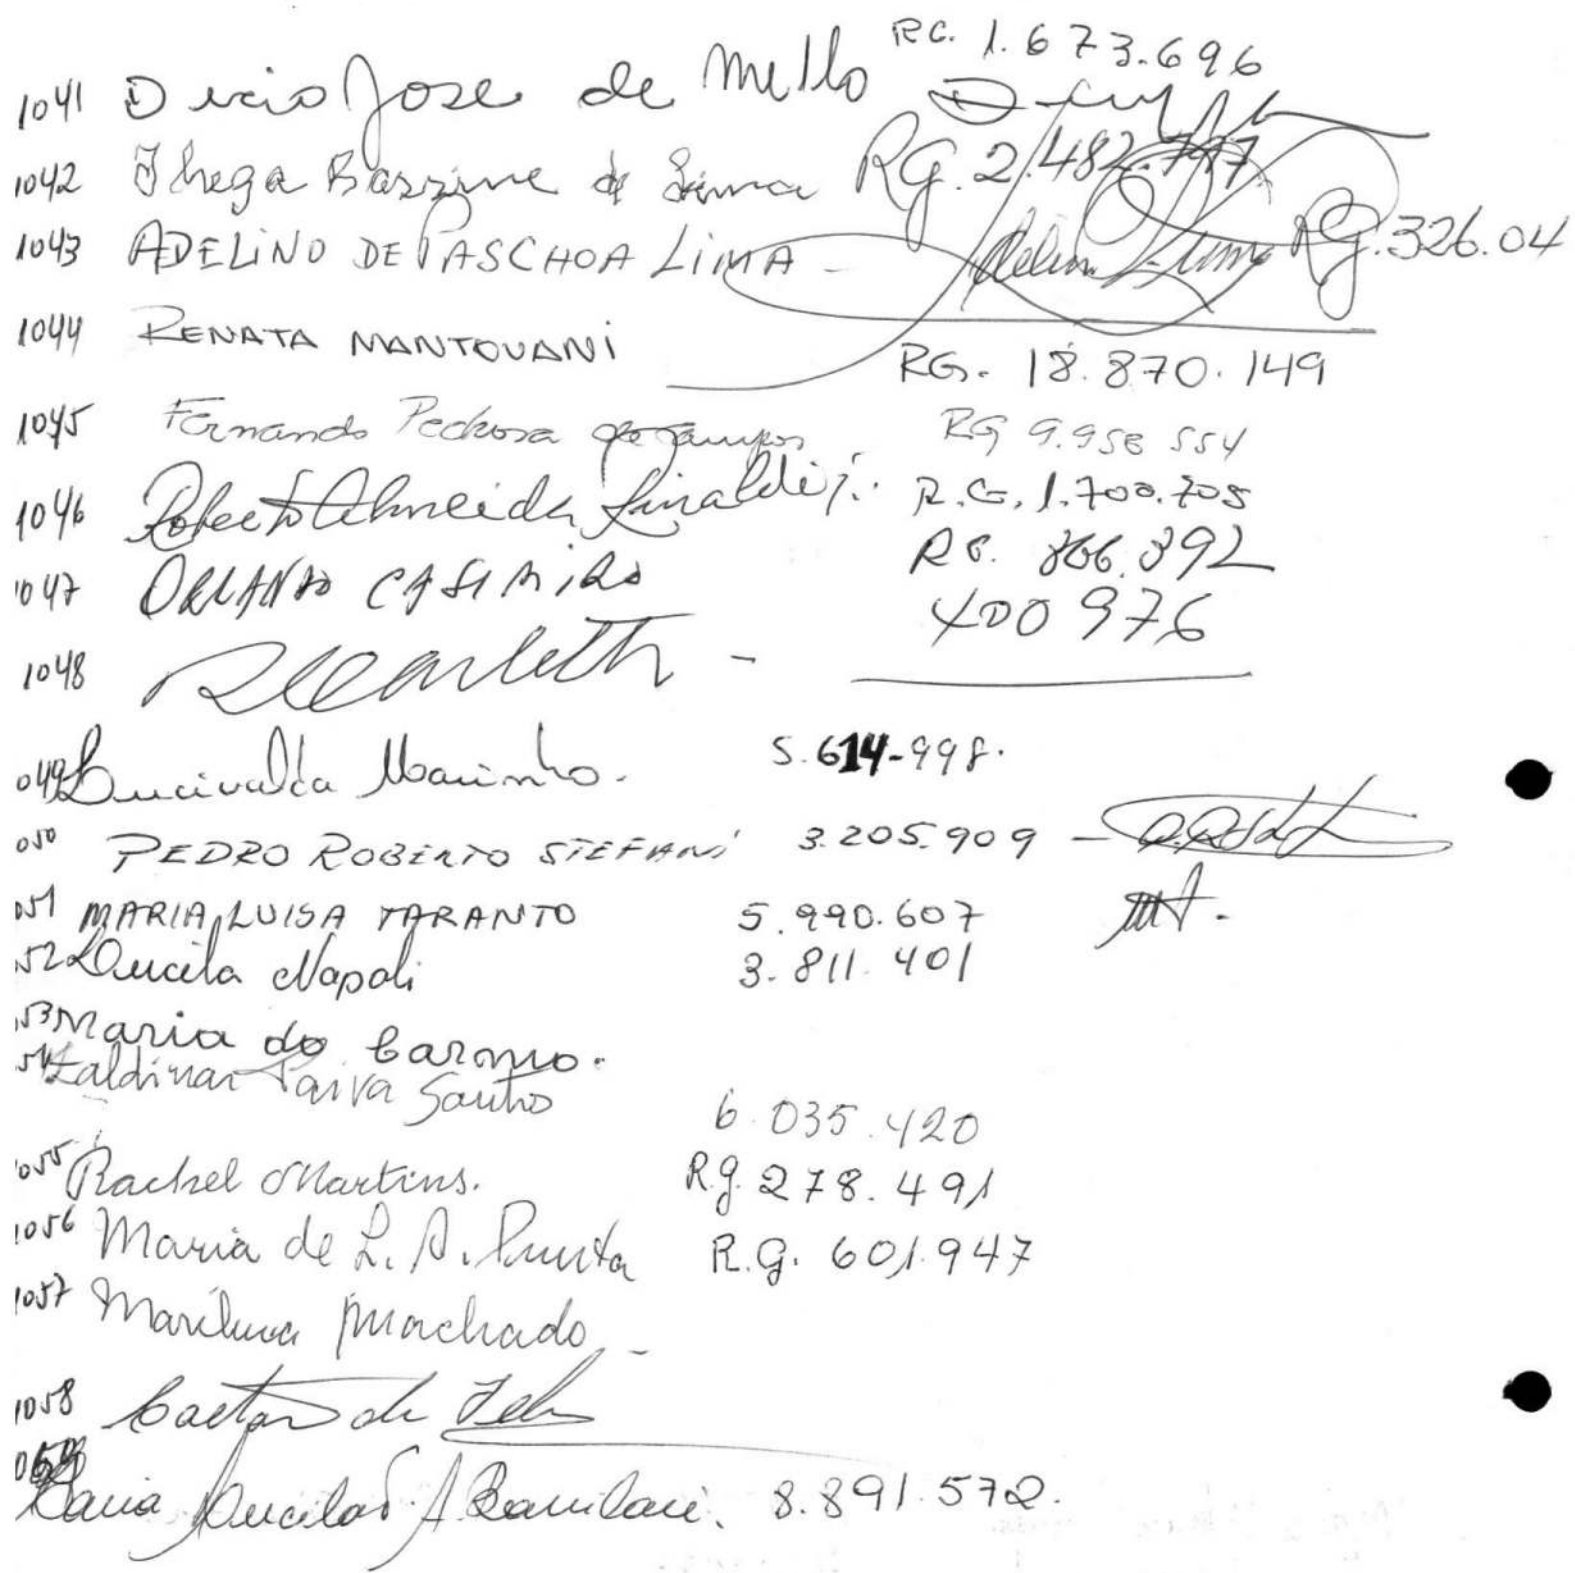 1041 Decio José de Mello RG. 1.673.696
1042 Bassine de Lima RG. 2.482.797
1043 ADELINO DE PASCHOA LIMA - RG. 326.04
1044 RENATA MANTOVANI RG. 18.870.149
1045 Fernando Pedrosa de Campos RG 9.958 554
1046 Roberto Almeida RG. 1.700.705
1047 ORLANDO CASIMIRO RG. 866.392
1048 - 400 976
049 Lucivalda Marinho. 5.614-998.
050 PEDRO ROBERTO STEFANI 3.205.909 -
051 MARIA LUISA TARANTO 5.990.607
52 Lucila Napoli 3.811.401
53 Maria do Carmo.
54 Paiva Santos 6.035.420
1055 Rachel Martins. Rg. 278.491
1056 Maria de L. A. R.G. 601.947
1057 Machado -
1058 Caetano de
059 Maria A. 8.891.572.